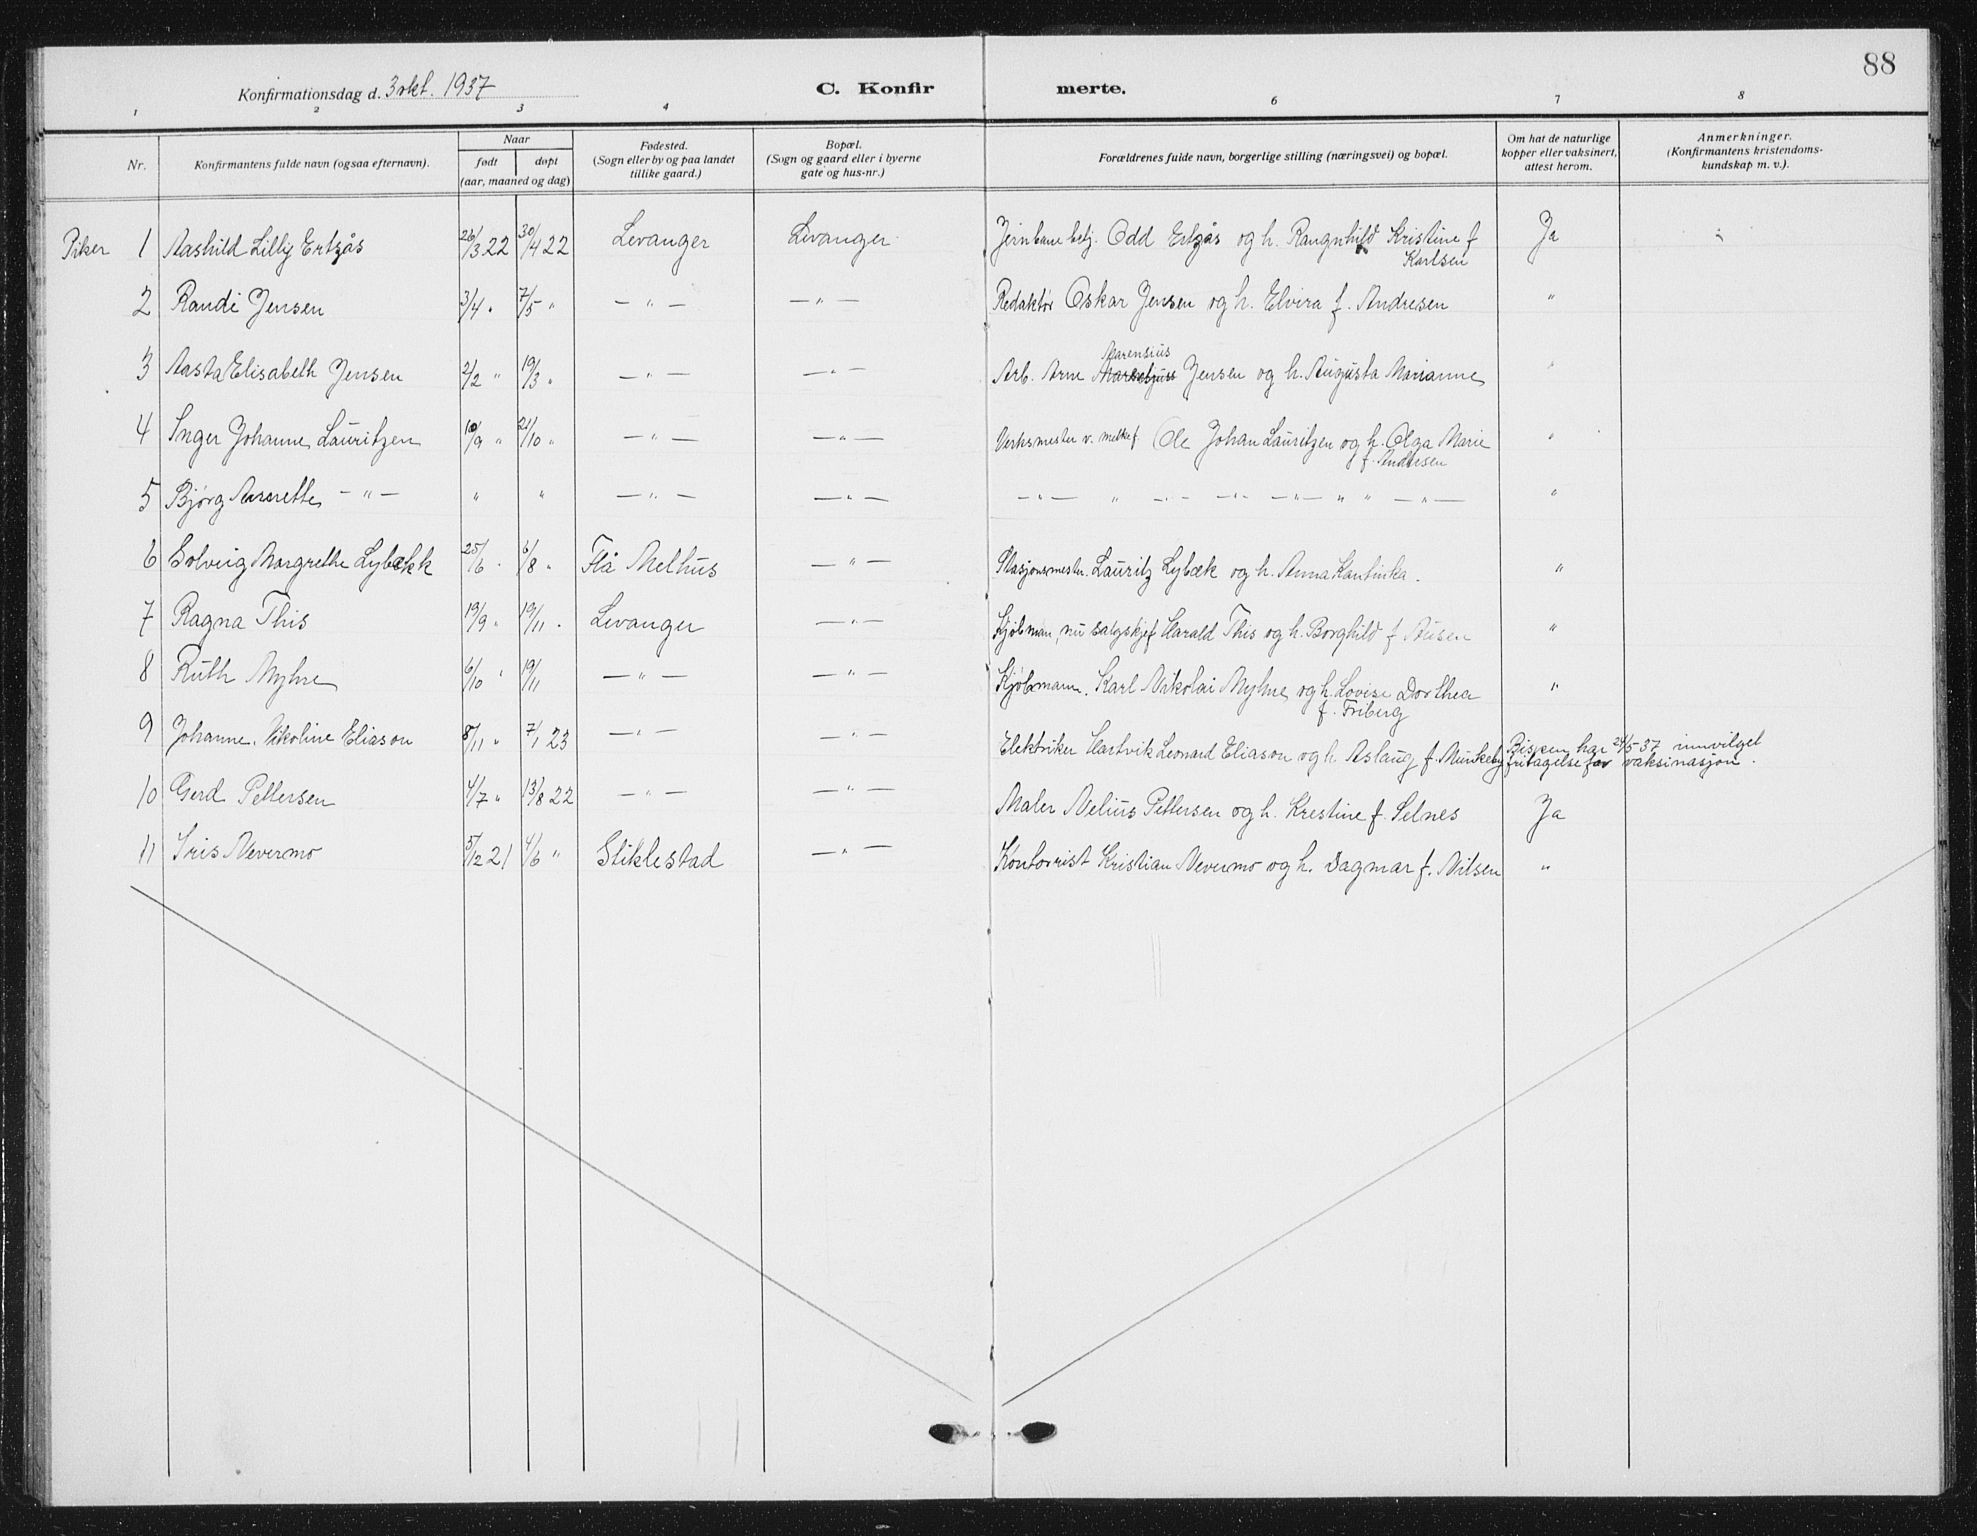 88
Konfirmationsdag d. 3 okt. 1937
C. Konfirmerte.
1 2 3 4 6 7 8
Nr.
Konfirmantens fulde navn (ogsaa efternavn).
Naar
født døpt
(aar, maaned og dag)
Fødested.
(Sogn eller by og paa landet
tillike gaard.)
Bopæl.
(Sogn og gaard eller i byerne
gate og hus-nr.)
Forældrenes fulde navn, borgerlige stilling (næringsvei) og bopæl.
Om hat de naturlige
kopper eller vaksinert,
attest herom.
Anmerkninger.
(Konfirmantens kristendoms-
kundskap m. v.).
Piker 1 Aashild Lilly Ertzås 26/3 22 30/4 22 Levanger Levanger Jernbanebetj. Odd Ertzås og h. Rangnhild Kristine f Ja
Karlsen
2 Randi Jensen 3/4 " 7/5 " — " — — " — Redaktør Oskar Jensen og h. Elvira f. Andresen "
Marensius
3 Aasta Elisabeth Jensen 2/2 " 19/3 " — " — — " — Arb. Arne Jensen og h. Augusta Marianne "
4 Inger Johanne Lauritzen 10/9 " 21/10 " — " — — " — Verksmester v. Ole Johan Lauritzen og h. Olga Marie "
f. Andresen
5 Bjørg Annette — " — " " — " — — " — — " — " — " — — " — — " — " " — " — "
6 Solveig Margrethe Lybekk 25/6 " 6/8 " Flå Melhus — " — Stasjonsmester. Lauritz Lybæk og h. Anna Kantinka. "
7 Ragna This 19/9 " 19/11 " Levanger — " — Kjøbman, nu salgskjef Harald This og h. Borghild f. Ausen "
8 Ruth Myhre 6/10 " 19/11 — " — — " — Kjøbmann. Karl Nikolai Myhre og h. Lovise Dorthea "
f. Friberg
9 Johanne Nikoline Eliason 8/11 " 7/1 23 — " — — " — Elektriker Hartvik Leonard Eliason og h Aslaug f. Munkeby Bispen har 24/5-37 innvilget
fritagelse for vaksinasjon.
10 Gerd Pettersen 4/7 " 13/8 22 — " — — " — Maler Nelius Pettersen og h. Krestine f. Selnes Ja
11 Iris Nevermo 5/2 21 4/6 " Stiklestad — " — Kontorist Kristian Nevermo og h. Dagmar f. Nilsen "